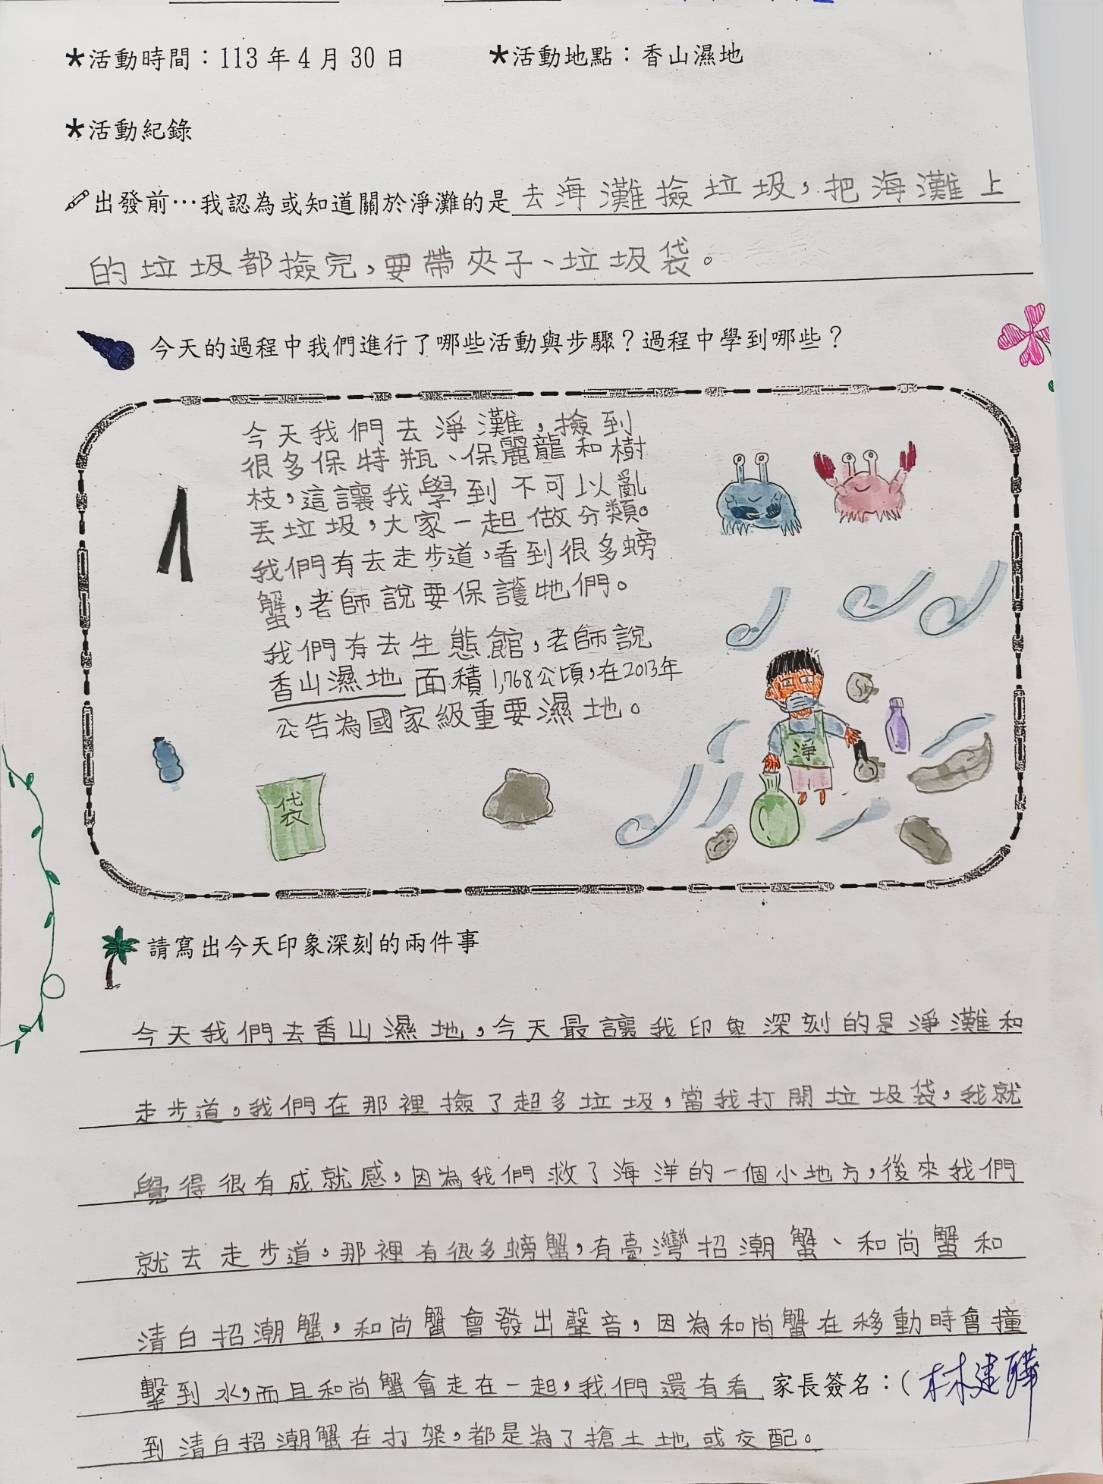 ★活動時間：113年4月30日　★活動地點：香山濕地
★活動紀錄
出發前…我認為或知道關於淨灘的是去海灘撿垃圾，把海灘上
的垃圾都撿完，要帶夾子、垃圾袋。
今天的過程中我們進行了哪些活動與步驟？過程中學到哪些？
今天我們去淨灘，撿到
很多保特瓶、保麗龍和樹
枝，這讓我學到不可以亂
丟垃圾，大家一起做分類。
我們有去走步道，看到很多螃
蟹，老師說要保護牠們。
我們有去生態館，老師說
香山濕地面積1,768公頃，在2013年
公告為國家級重要濕地。
淨
袋
請寫出今天印象深刻的兩件事
今天我們去香山濕地，今天最讓我印象深刻的是淨灘和
走步道。我們在那裡撿了超多垃圾，當我打開垃圾袋，我就
覺得很有成就感，因為我們救了海洋的一個小地方，後來我們
就去走步道，那裡有很多螃蟹，有臺灣招潮蟹、和尚蟹和
清白招潮蟹，和尚蟹會發出聲音，因為和尚蟹在移動時會撞
擊到水，而且和尚蟹會走在一起，我們還有看 家長簽名：（林建
到清白招潮蟹在打架，都是為了搶土地或交配。